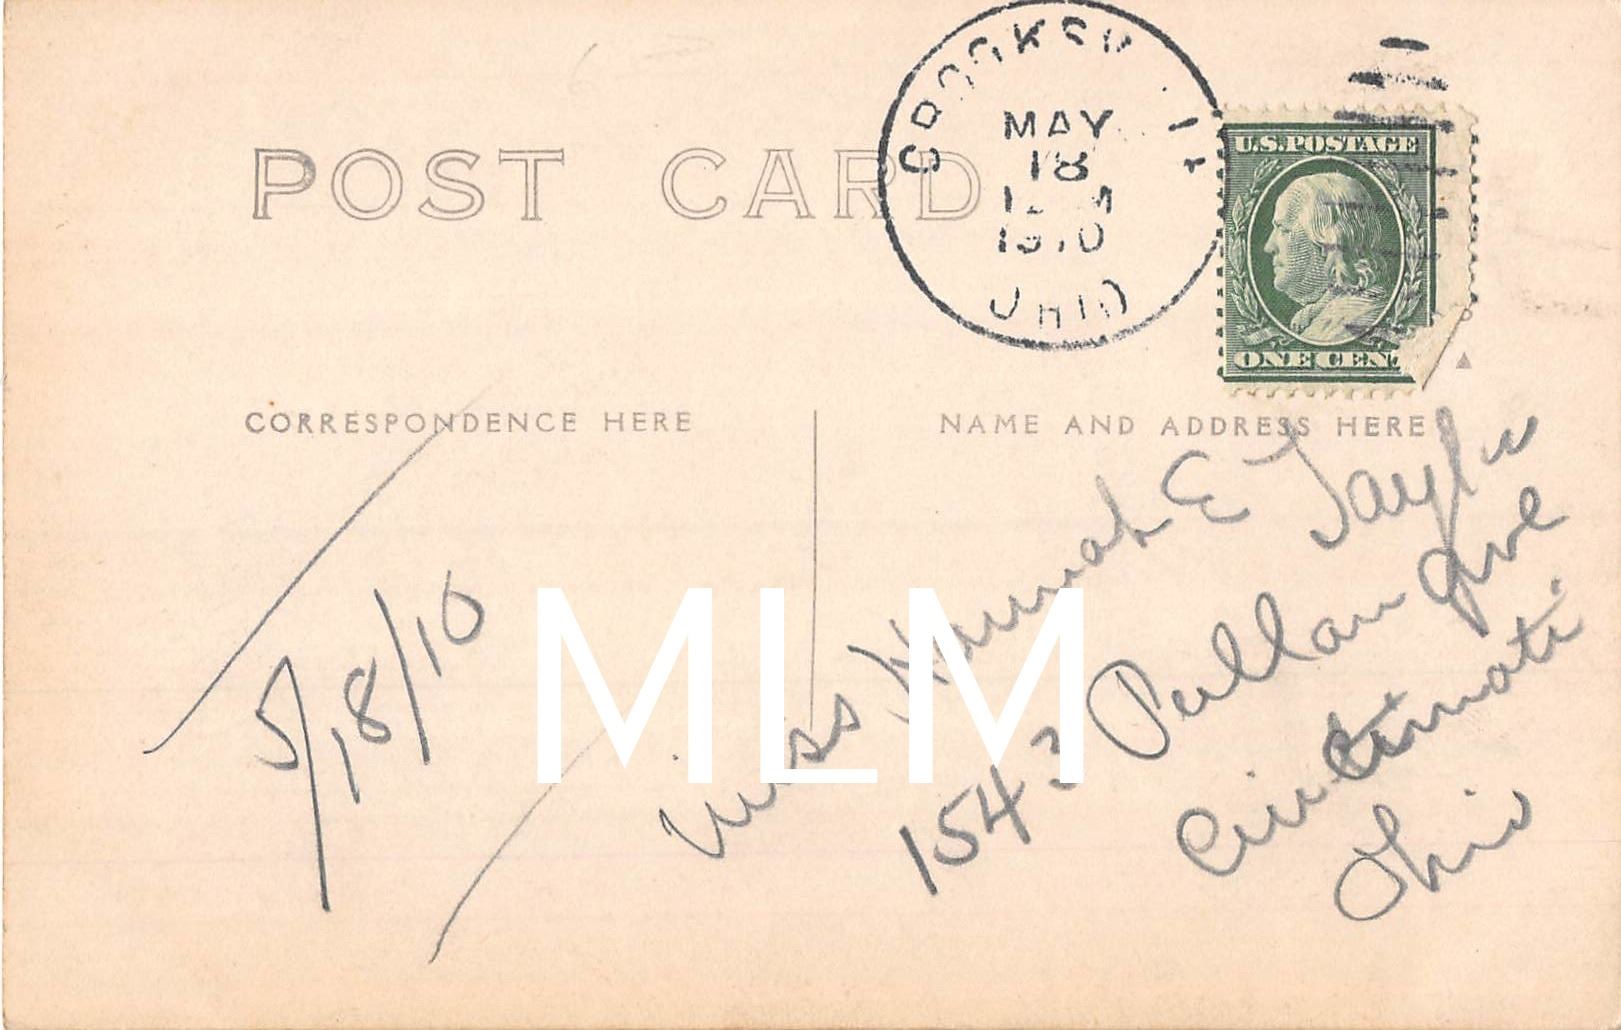 POST CARD
CROOKSVILLE
MAY
18
1910
OHIO
U.S. POSTAGE
ONE CEN
CORRESPONDENCE HERE
NAME AND ADDRESS HERE
5/18/10
Miss Hannah E Taylor
1543 Pullan Ave
Cincinnati
Ohio
MLM